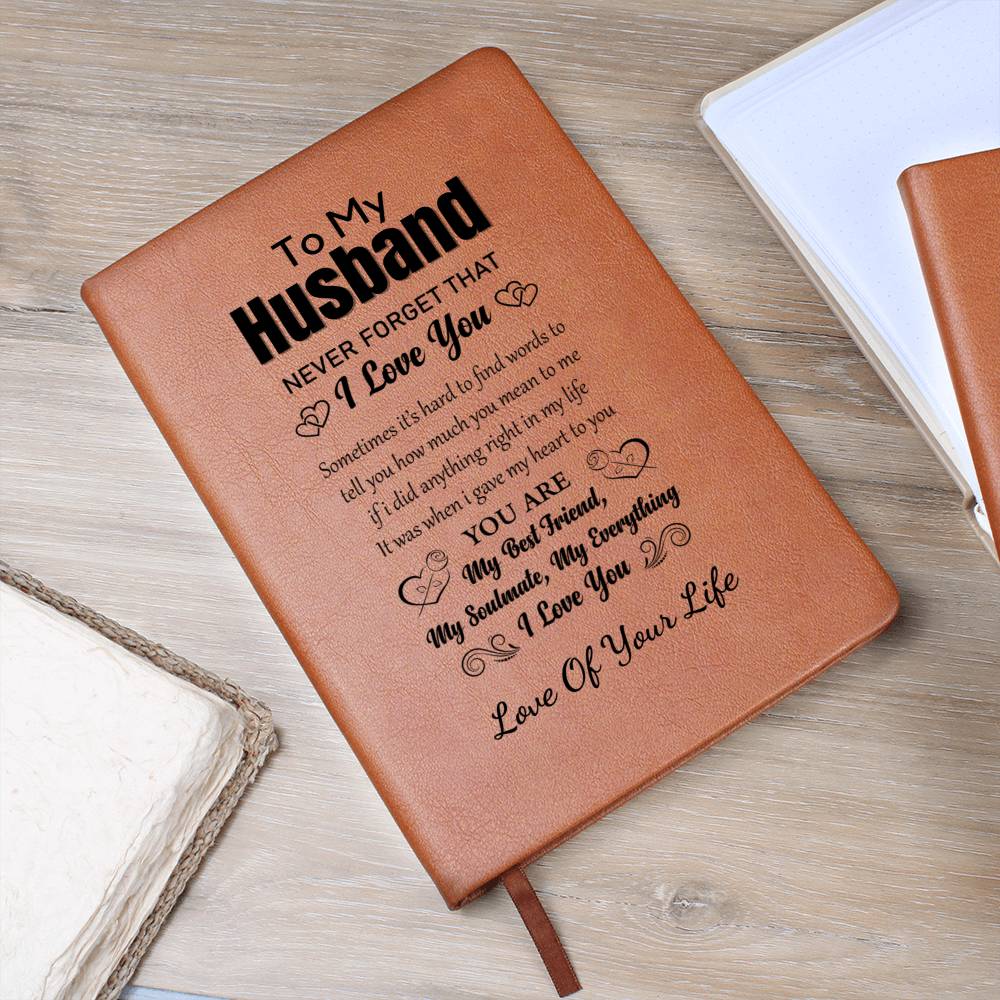 To My
Husband
NEVER FORGET THAT
I Love You
Sometimes it's hard to find words to
tell you how much you mean to me
if i did anything right in my life
It was when i gave my heart to you
YOU ARE
My Best Friend,
My Soulmate, My Everything
I Love You
Love Of Your Life